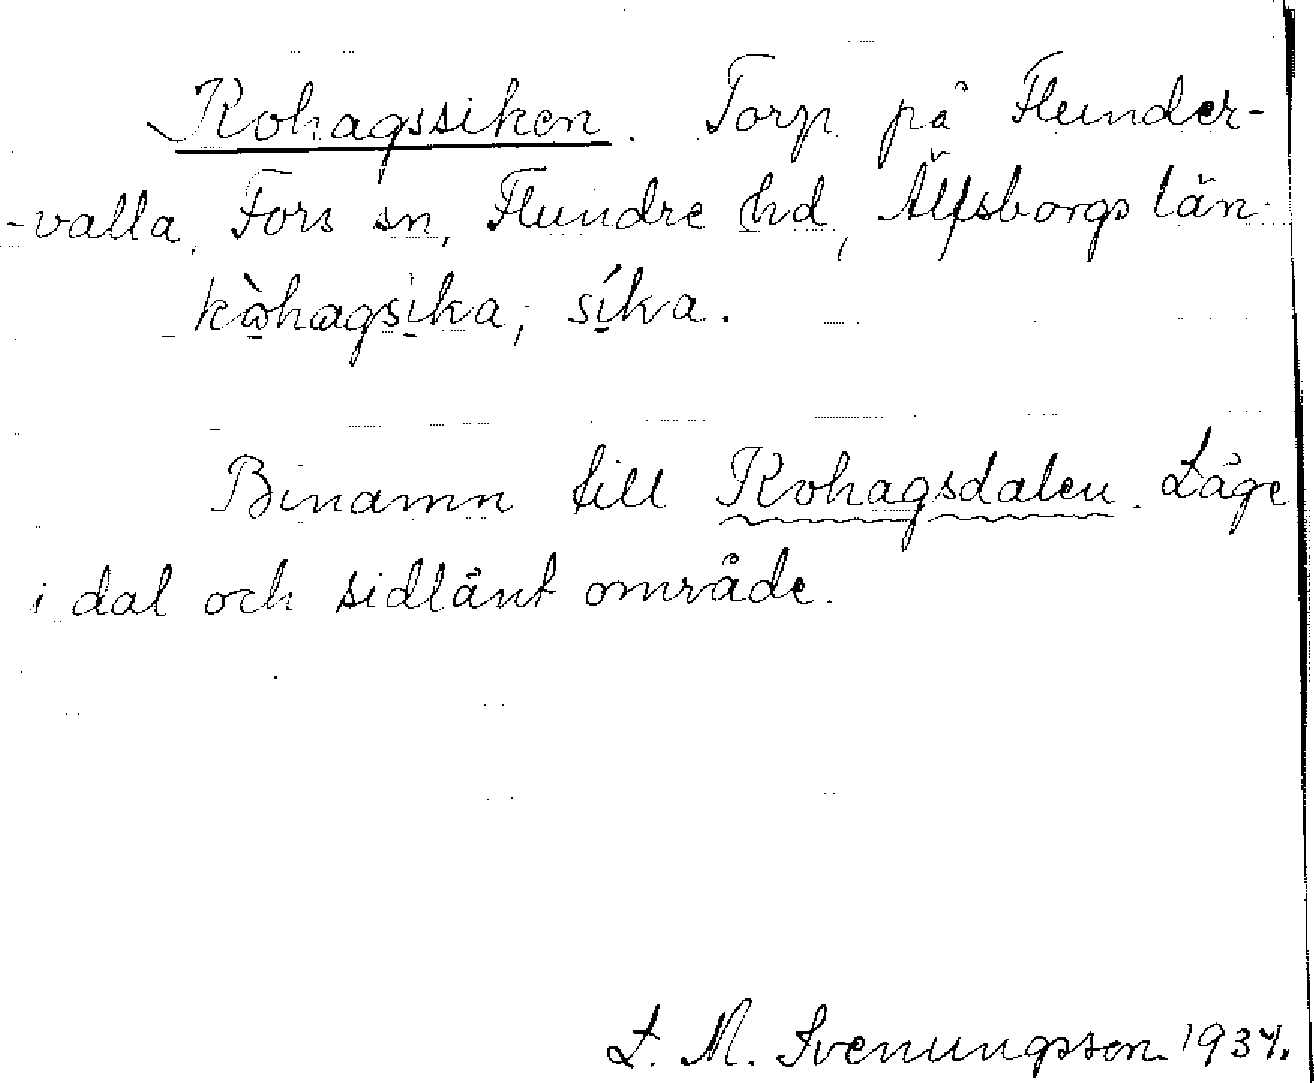 Kohagssiken. Torp på Flunder-
-valla, Fors sn, Flundre hd, Älfsborgs län.
kò̱hagsi̱ka, sí̱ka.
Binamn till Kohagsdalen. Läge
i dal och sidlänt område.
L. M. Svenungsson. 1934.